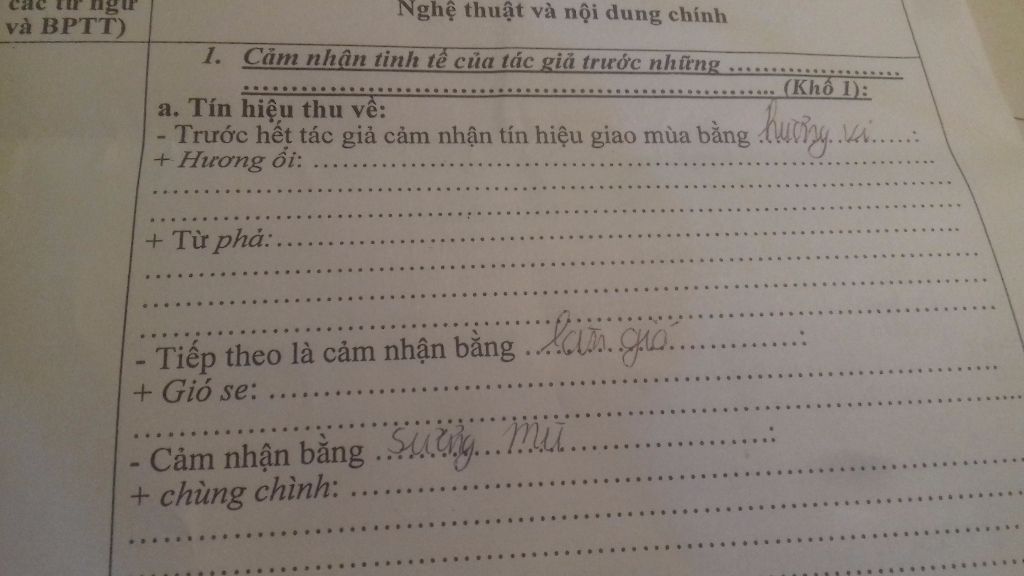 các từ ngữ
và BPTT)
Nghệ thuật và nội dung chính
1. Cảm nhận tinh tế của tác giả trước những ....................
.................................................................. (Khổ 1):
a. Tín hiệu thu về:
- Trước hết tác giả cảm nhận tín hiệu giao mùa bằng hương vị......:
+ Hương ổi: ......................................................................
..........................................................................................
..........................................................................................
+ Từ phả:..........................................................................
..........................................................................................
..........................................................................................
..........................................................................................
- Tiếp theo là cảm nhận bằng ...làn gió...............:
+ Gió se: ..........................................................................
..........................................................................................
- Cảm nhận bằng ...sương mù.....................:
+ chùng chình: ................................................................
..........................................................................................
..........................................................................................